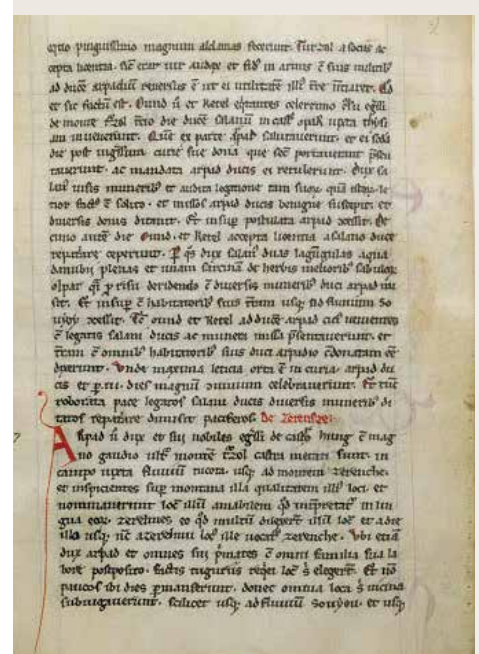 equo pinguissimo magnum aldamas fecerunt. Turzol a sociis ac
cepta licentia. sic erat uir audax et fid᷒ in armis c̄ suis militib᷒
ad ducē arpadiū reuersus ē ut ei utilitatē illi᷒ tr̄e nūtiaret.
et sic factū est. Ound ū et Ketel equitantes celerrimo
de monte turzol t̄cio die ducē salanū in castro opar iuxta thysi
am inuenerunt. Quē ex parte arpad salutauerunt. et ei s̄da
die post ingressum curie sue dona que sec̄ portauerant p̄sen
tauerunt. ac mandata arpad ducis ei retulerunt. Dux sa
lan᷒ uisis munerib᷒ et audita legatione tam suoꝝ quā istoꝝ. le
tior fact᷒ ē solito. et missos arpad ducis benigne suscepit. et
diuersis donis ditauit. Et insup̄ postulata arpad c̄cessit. De
cimo autē die Ound. et Ketel accepta licentia a salano duce
repatriare ceperunt. P̱ q̄s dux salan᷒ duas lagungulas aqua
danubii plenas et unam sarcinā de herbis meliorib᷒ sabuloꝝ
olpar q̄si p̱ risū deridendo c̄ diuersis munerib᷒ duci arpad mi
sit. Et insup̄ c̄ habitatorib᷒ suis tr̄am usq᷒ ad fluuium so
uyoy c̄cessit. Tc̄ ound et Ketel ad ducē arpad cici᷒ uenientes
c̄ legatis salani ducis ac munera missa p̄sentauerunt. et
tr̄am c̄ omnib᷒ habitatorib᷒ suis duci arpadio c̄donatam ēē
dixerunt. Vnde maxima leticia orta ē in curia arpad du
cis et p̱ t̄s. dies magnū ɔuiuium celebrauerunt. Et tūc
roborata pace legatos salani ducis diuersis munerib᷒ di
tatos repatriare dimisit paciferos. De zerensze.
Arpad ū dux et sui nobiles egressi de castro hung c̄ mag
no gaudio ultra montē turzol castra metati sunt. in
campo iuxta fluuiū tucota. usq᷒ ad montem zerenche.
et inspicientes sup̄ montana illa qualitatem illi᷒ loci. et
nominauerunt locū illū amabilem q̄d interpretat᷒ in lin
gua eoꝝ. zerelmes eo q̄d multū dilexerant illū locū et a die
illa usq᷒ nc̄ a zerelmu loc᷒ ille uocat᷒ zerenche. Vbi etiā
dux arpad et omnes sui p̄mates c̄ omni familia sua la
bore postposito. factis tuguriis requiē locū s̄ elegerunt. Et nō
paucos ibi dies p̱manserunt. donec omnia loca s̄ uicina
subiugauerunt. scilicet usq᷒ ad fluuiū Souyou. et usq᷒